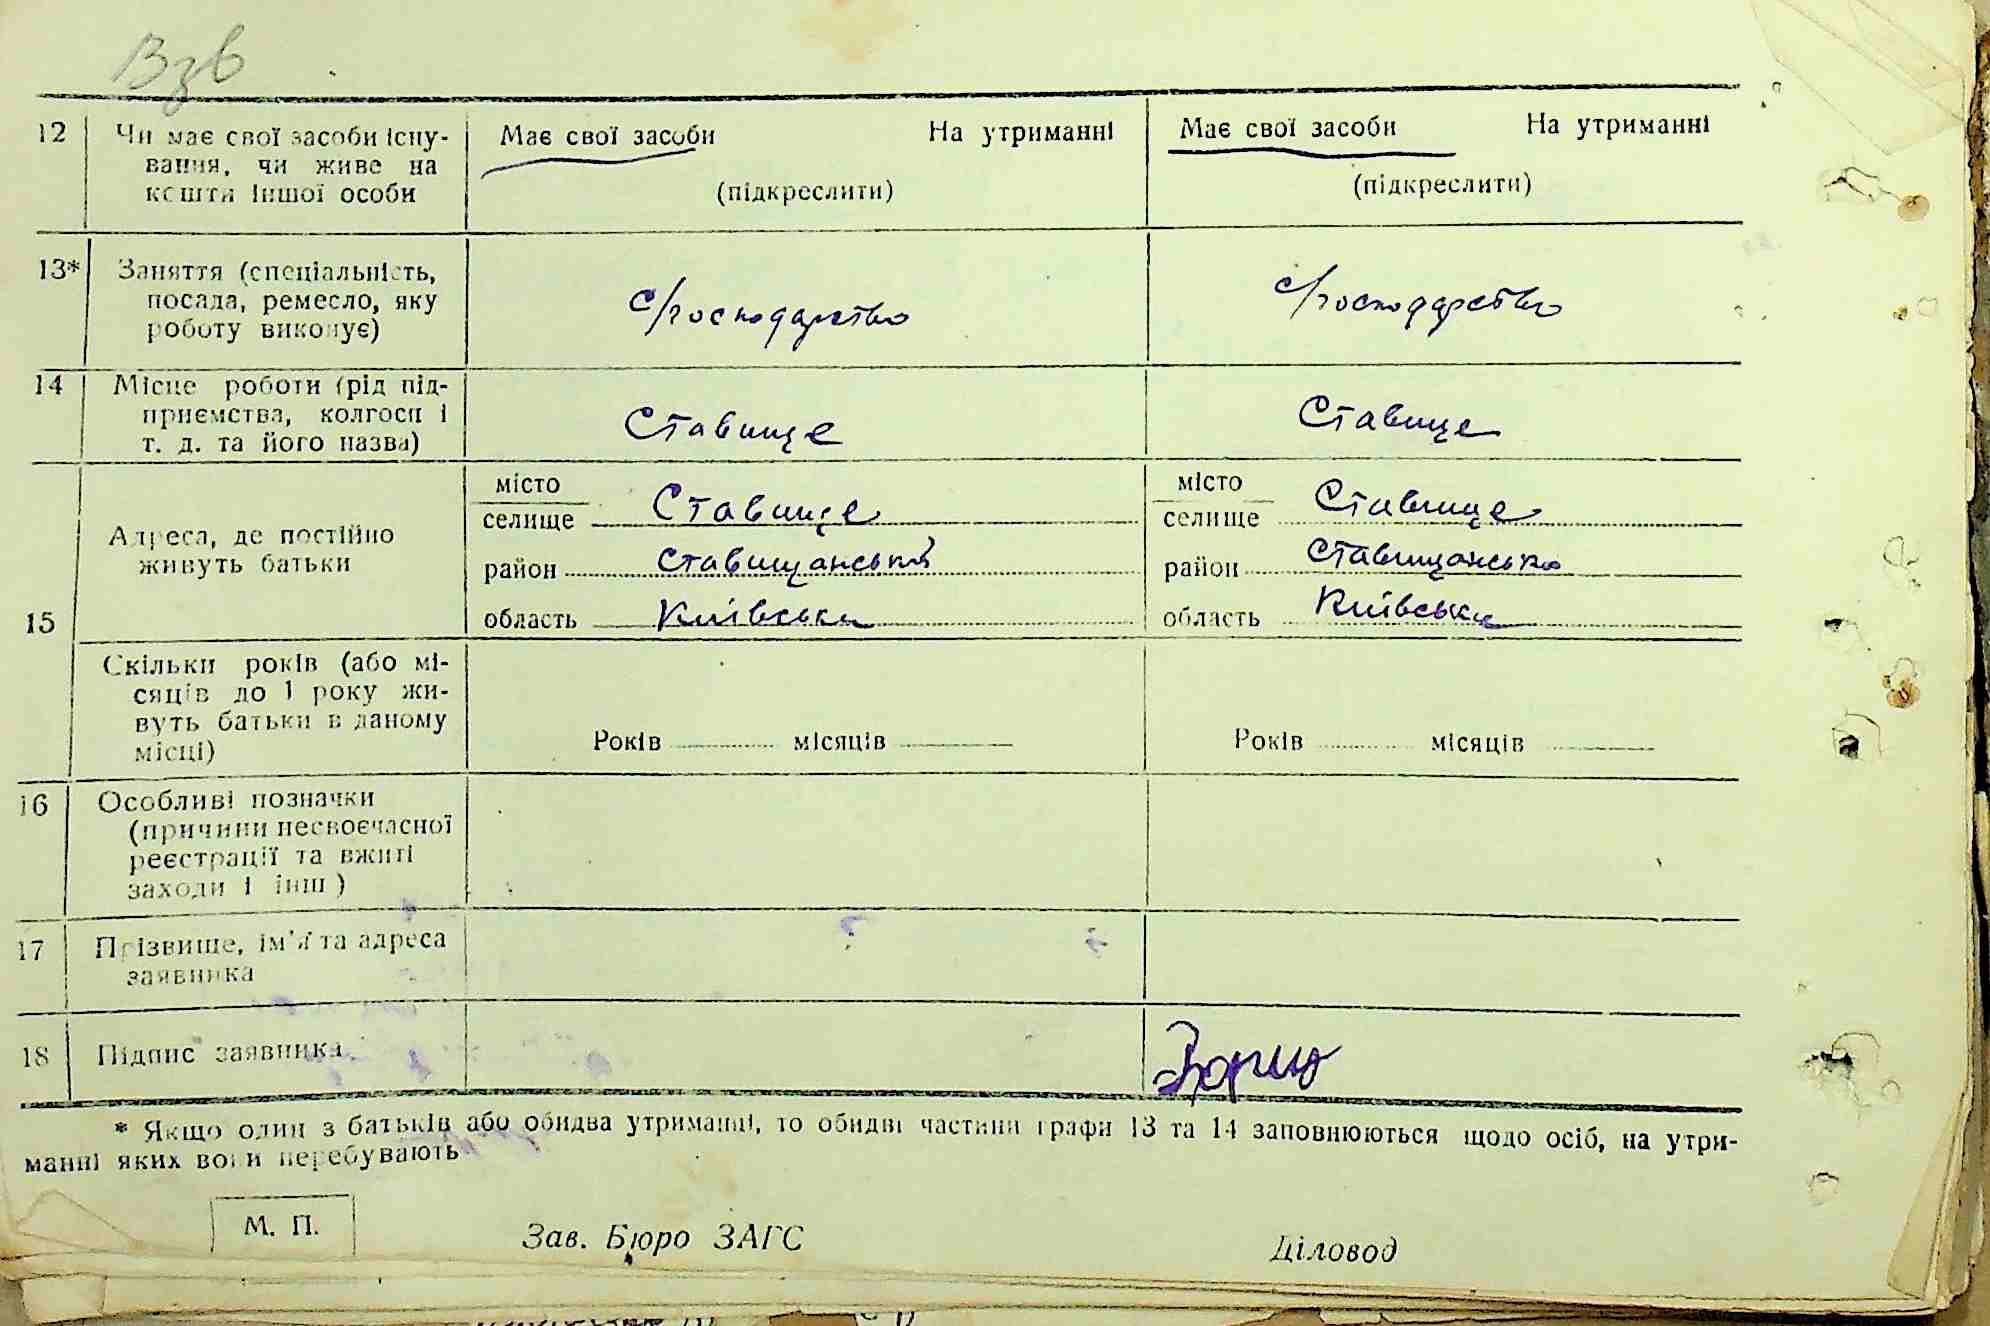 Взв
12 Чи має свої засоби існу- Має свої засоби На утриманні Має свої засоби На утриманні
вання, чи живе на
кошти іншої особи (підкреслити) (підкреслити)
13* Заняття (спеціальність,
посада, ремесло, яку с/господарство с/господарство
роботу виконує)
14 Місце роботи (рід під-
приємства, колгосп і Ставище Ставище
т. д. та його назва)
місто місто
селище Ставище селище Ставище
15 Адреса, де постійно
живуть батьки район Ставищанський район Ставищансько
область Київська область Київська
Скільки років (або мі-
сяців до 1 року жи-
вуть батьки в даному
місці) Років місяців Років місяців
16 Особливі позначки
(причини несвоєчасної
реєстрації та вжиті
заходи і інш)
17 Прізвище, ім'я та адреса
заявника
18 Підпис заявника
* Якщо один з батьків або обидва утриманці, то обидві частини графи 13 та 14 заповнюються щодо осіб, на утри-
манні яких вони перебувають
М. П. Зав. Бюро ЗАГС Діловод